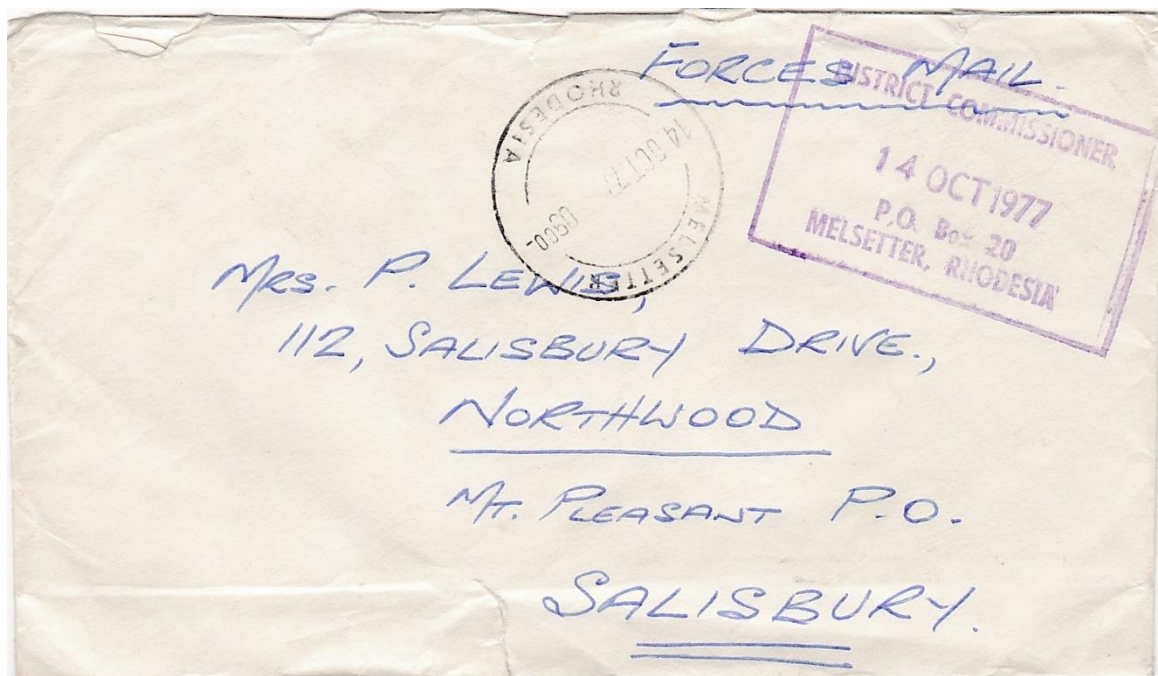 FORCES MAIL.
DISTRICT COMMISSIONER
14 OCT 1977
P.O. Box 20
MELSETTER, RHODESIA
RHODESIA
14 OCT 77
0900
MELSETTER
MRS. P. LEWIS,
112, SALISBURY DRIVE.,
NORTHWOOD
MT. PLEASANT P.O.
SALISBURY.